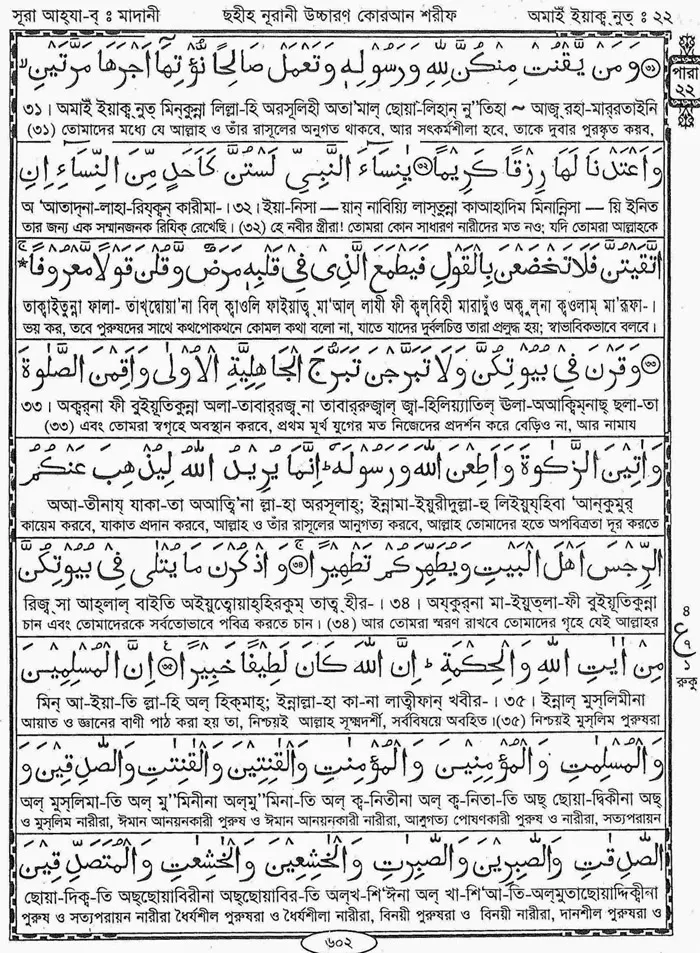 সূরা আহ্যা-ব্ : মাদানী
ছহীহ নূরানী উচ্চারণ কোরআন শরীফ
অমাইঁ ইয়াক্ব্ নুত্ : ২২
পারা
২২
وَمَنْ يَّقْنُتْ مِنْكُنَّ لِلّٰهِ وَرَسُوْلِهٖ وَتَعْمَلْ صَالِحًا نُّؤْتِهَآ اَجْرَهَا مَرَّتَيْنِ ۙ
৩১। অমাইঁ ইয়াক্ব্ নুত্ মিন্কুন্না লিল্লা-হি অরসূলিহী অতা'মাল্ ছোয়া-লিহান্ নু''তিহা ~ আজ্ব্ রহা-মার্রতাইনি
(৩১) তোমাদের মধ্যে যে আল্লাহ ও তাঁর রাসূলের অনুগত থাকবে, আর সৎকর্মশীলা হবে, তাকে দুবার পুরষ্কৃত করব,
وَاَعْتَدْنَا لَهَا رِزْقًا كَرِيْمًا ۝٣٢ يٰنِسَآءَ النَّبِيِّ لَسْتُنَّ كَاَحَدٍ مِّنَ النِّسَآءِ اِنِ
অ 'আতাদ্না-লাহা-রিয্ক্বন্ কারীমা-।৩২। ইয়া-নিসা — য়ান্ নাবিয়্যি লাস্তুন্না কাআহাদিম্ মিনান্নিসা — য়ি ইনিত
তার জন্য এক সম্মানজনক রিযিক রেখেছি। (৩২) হে নবীর স্ত্রীরা! তোমরা কোন সাধারণ নারীদের মত নও; যদি তোমরা আল্লাহকে
اتَّقَيْتُنَّ فَلَا تَخْضَعْنَ بِالْقَوْلِ فَيَطْمَعَ الَّذِيْ فِيْ قَلْبِهٖ مَرَضٌ وَّقُلْنَ قَوْلًا مَّعْرُوْفًا ۚ
তাক্বাইতুন্না ফালা- তাখ্দ্বোয়া'না বিল্ ক্বাওলি ফাইয়াত্ব্ মা'আল্ লাযী ফী ক্বল্বিহী মারাদ্বুঁও অক্বুল্না ক্বওলাম্ মা'রূফা-।
ভয় কর, তবে পুরুষদের সাথে কথপোকথনে কোমল কথা বলো না, যাতে যাদের দুর্বলচিত্ত তারা প্রলুব্ধ হয়; স্বাভাবিকভাবে বলবে।
۝٣٣ وَقَرْنَ فِيْ بُيُوْتِكُنَّ وَلَا تَبَرَّجْنَ تَبَرُّجَ الْجَاهِلِيَّةِ الْاُوْلٰى وَاَقِمْنَ الصَّلٰوةَ
৩৩। অক্বর্না ফী বুইয়ূতিকুন্না অলা-তাবার্রজ্ব্ না তাবার্রুজ্বাল্ জ্বা-হিলিয়্যাতিল্ ঊলা-অআক্বিম্নাছ্ ছলা-তা
(৩৩) এবং তোমরা স্বগৃহে অবস্থান করবে, প্রথম মূর্খ যুগের মত নিজেদের প্রদর্শন করে বেড়িও না, আর নামায
وَاٰتِيْنَ الزَّكٰوةَ وَاَطِعْنَ اللّٰهَ وَرَسُوْلَهٗ ؕ اِنَّمَا يُرِيْدُ اللّٰهُ لِيُذْهِبَ عَنْكُمُ
অআ-তীনায্ যাকা-তা অআত্বি'না ল্লা-হা অরসূলাহ্; ইন্নামা-ইয়ুরীদুল্লা-হু লিইয়ুয্হিবা 'আন্কুমুর্
কায়েম করবে, যাকাত প্রদান করবে, আল্লাহ ও তাঁর রাসূলের আনুগত্য করবে, আল্লাহ তোমাদের হতে অপবিত্রতা দূর করতে
الرِّجْسَ اَهْلَ الْبَيْتِ وَيُطَهِّرَكُمْ تَطْهِيْرًا ۝٣٤ وَاذْكُرْنَ مَا يُتْلٰى فِيْ بُيُوْتِكُنَّ
রিজ্ব্ সা আহ্লাল্ বাইতি অইয়ুত্বোয়াহ্হিরকুম্ তাত্ব্ হীর-। ৩৪। অয্কুর্না মা-ইয়ুত্লা-ফী বুইয়ূতিকুন্না
চান এবং তোমাদেরকে সর্বতোভাবে পবিত্র করতে চান। (৩৪) আর তোমরা স্মরণ রাখবে তোমাদের গৃহে যেই আল্লাহর
مِنْ اٰيٰتِ اللّٰهِ وَالْحِكْمَةِ ؕ اِنَّ اللّٰهَ كَانَ لَطِيْفًا خَبِيْرًا ۝٣٥ اِنَّ الْمُسْلِمِيْنَ
মিন্ আ-ইয়া-তি ল্লা-হি অল্ হিক্মাহ্; ইন্নাল্লা-হা কা-না লাত্বীফান্ খবীর-। ৩৫। ইন্নাল্ মুস্লিমীনা
আয়াত ও জ্ঞানের বাণী পাঠ করা হয় তা, নিশ্চয়ই আল্লাহ সূক্ষ্মদর্শী, সর্ববিষয়ে অবহিত।(৩৫) নিশ্চয়ই মুসলিম পুরুষরা
৪
ع
৭
১
রুকু
وَالْمُسْلِمٰتِ وَالْمُؤْمِنِيْنَ وَالْمُؤْمِنٰتِ وَالْقٰنِتِيْنَ وَالْقٰنِتٰتِ وَالصّٰدِقِيْنَ وَ
অল্ মুস্লিমা-তি অল্ মু''মিনীনা অল্মু''মিনা-তি অল্ ক্ব-নিতীনা অল্ ক্ব-নিতা-তি অছ্ ছোয়া-দ্বিকীনা অছ্
ও মুসলিম নারীরা, ঈমান আনয়নকারী পুরুষ ও ঈমান আনয়নকারী নারীরা, আনুগত্য পোষণকারী পুরুষ ও নারীরা, সত্যপরায়ন
الصّٰدِقٰتِ وَالصّٰبِرِيْنَ وَالصّٰبِرٰتِ وَالْخٰشِعِيْنَ وَالْخٰشِعٰتِ وَالْمُتَصَدِّقِيْنَ
ছোয়া-দিক্ব-তি অছ্ছোয়াবিরীনা অছ্ছোয়াবির-তি অল্খ-শি'ঈনা অল্ খা-শি'আ-তি-অল্মুতাছোয়াদ্দিক্বীনা
পুরুষ ও সত্যপরায়ন নারীরা ধৈর্যশীল পুরুষরা ও ধৈর্যশীলা নারীরা, বিনয়ী পুরুষরা ও বিনয়ী নারীরা, দানশীল পুরুষরা ও
৬০২